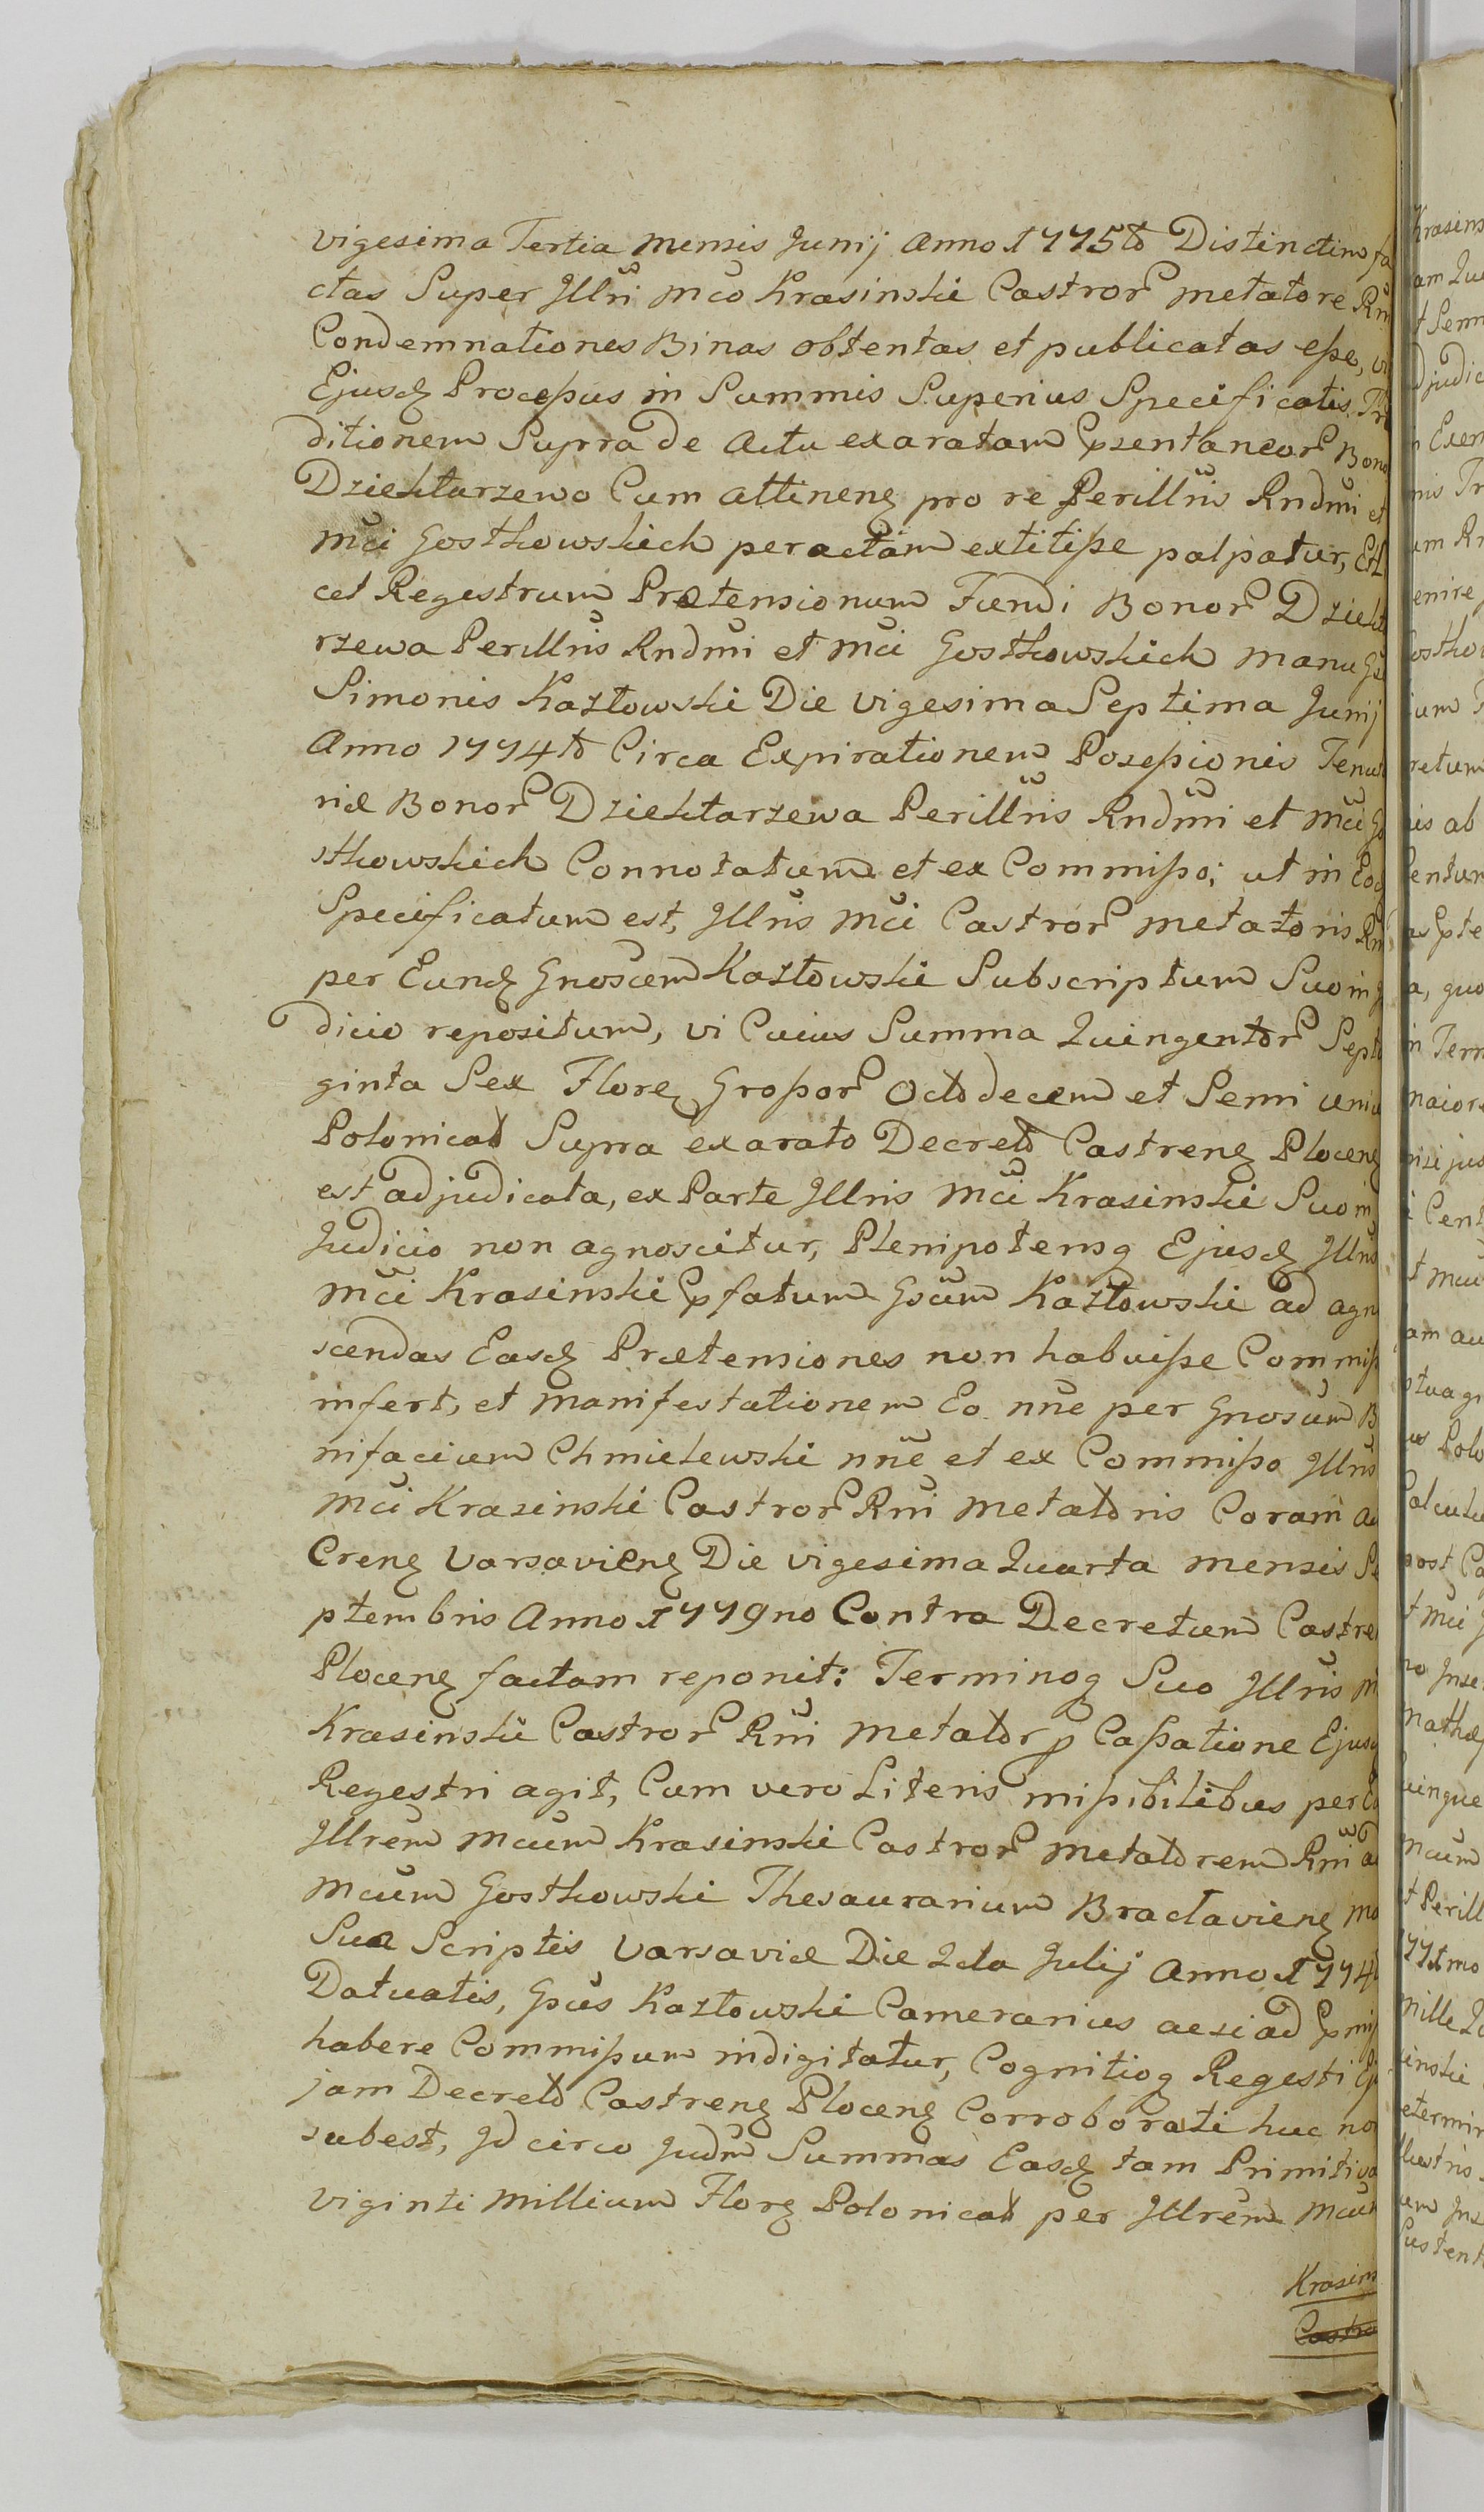 vigesima Tertia mensis Junij Anno 1775to Distinctim fa
ctas Super Illri Mco Krasinski Castror metatore Rni
Condemnationes Binas obtentas et publicatas eſse, vi
Ejusq Proceſsus in Summis Superius Specificatis Tra
ditionem Supra de Actu exaratam pzentaneor Bono
Dziektarzewo Cum attinenq pro re Perillris Rndmi et
Mci Gostkowskich peractam extitiſse palpatur, Et
cet Regestrum Prætensionum Fundi Bonor Dziekta
rzewa Perillris Rndmi et Mci Gostkowskich manu
Simonis Kozłowski Die vigesima Septima Junij
Anno 1774to Circa Expirationem Poseſsionis Tenu
riæ Bonor Dziektarzewa Perillris Rndmi et Mci Go
stkowskich Connotatum et ex Commiſso; ut in Eod
Specificatum est, Illris Mci Castror metatoris Rni
per Eundq Gnoscem Kozłowski Subscriptum Suo in
dicio repositum, vi Cuius Summa Quingentor Septua
ginta Sex Florq Groſsor Octodecem et Semi unius
Polonical Supra exarato Decreto Castrenq Plocenq
est adjudicata, ex Parte Illris Mci Krasinski Suo in
Judicio non agnoscitur, Plenipotensq Ejusdq Illris
Mci Krasinski pfatum Gsum Kozłowski ad agno
scendas Easdq Prætensiones non habuiſse Commiſs
infert, et manifestationem Eo nne per Gnosum Bo
nifacium Chmielewski nne et ex Commiſso Illris
Mci Krasinski Castror Rni metatoris Coram Ac
Crenq Varsavienq Die vigesima Quarta mensis Se
ptembris Anno 1779no Contra Decretum Castren
Plocenq factam reponit: Terminoq Suo Illris M
Krasinski Castror Rni Metator p Caſsatione Ejusd
Regestri agit, Cum vero Literis miſsibilibus per
Illrem Mcum Krasinski Castror metatorem Rni ad
Mcum Gostkowski Thesaurarium Braclavienq Ma
Sua Scriptis Varsaviæ Die 2da Julij Anno 1774
Datuatis, Gsus Kozłowski Camerarius acsi ad pmiſs
habere Commiſsum indigitatur, Cognitioq Regesti Ej
jam Decreto Castrenq Plocenq Corroborati huc non
subest, Id circo Judm Summas Easdq tam Primitiva
viginti millium Florq Polonical per Illrem Mcum
Krasins
Castro